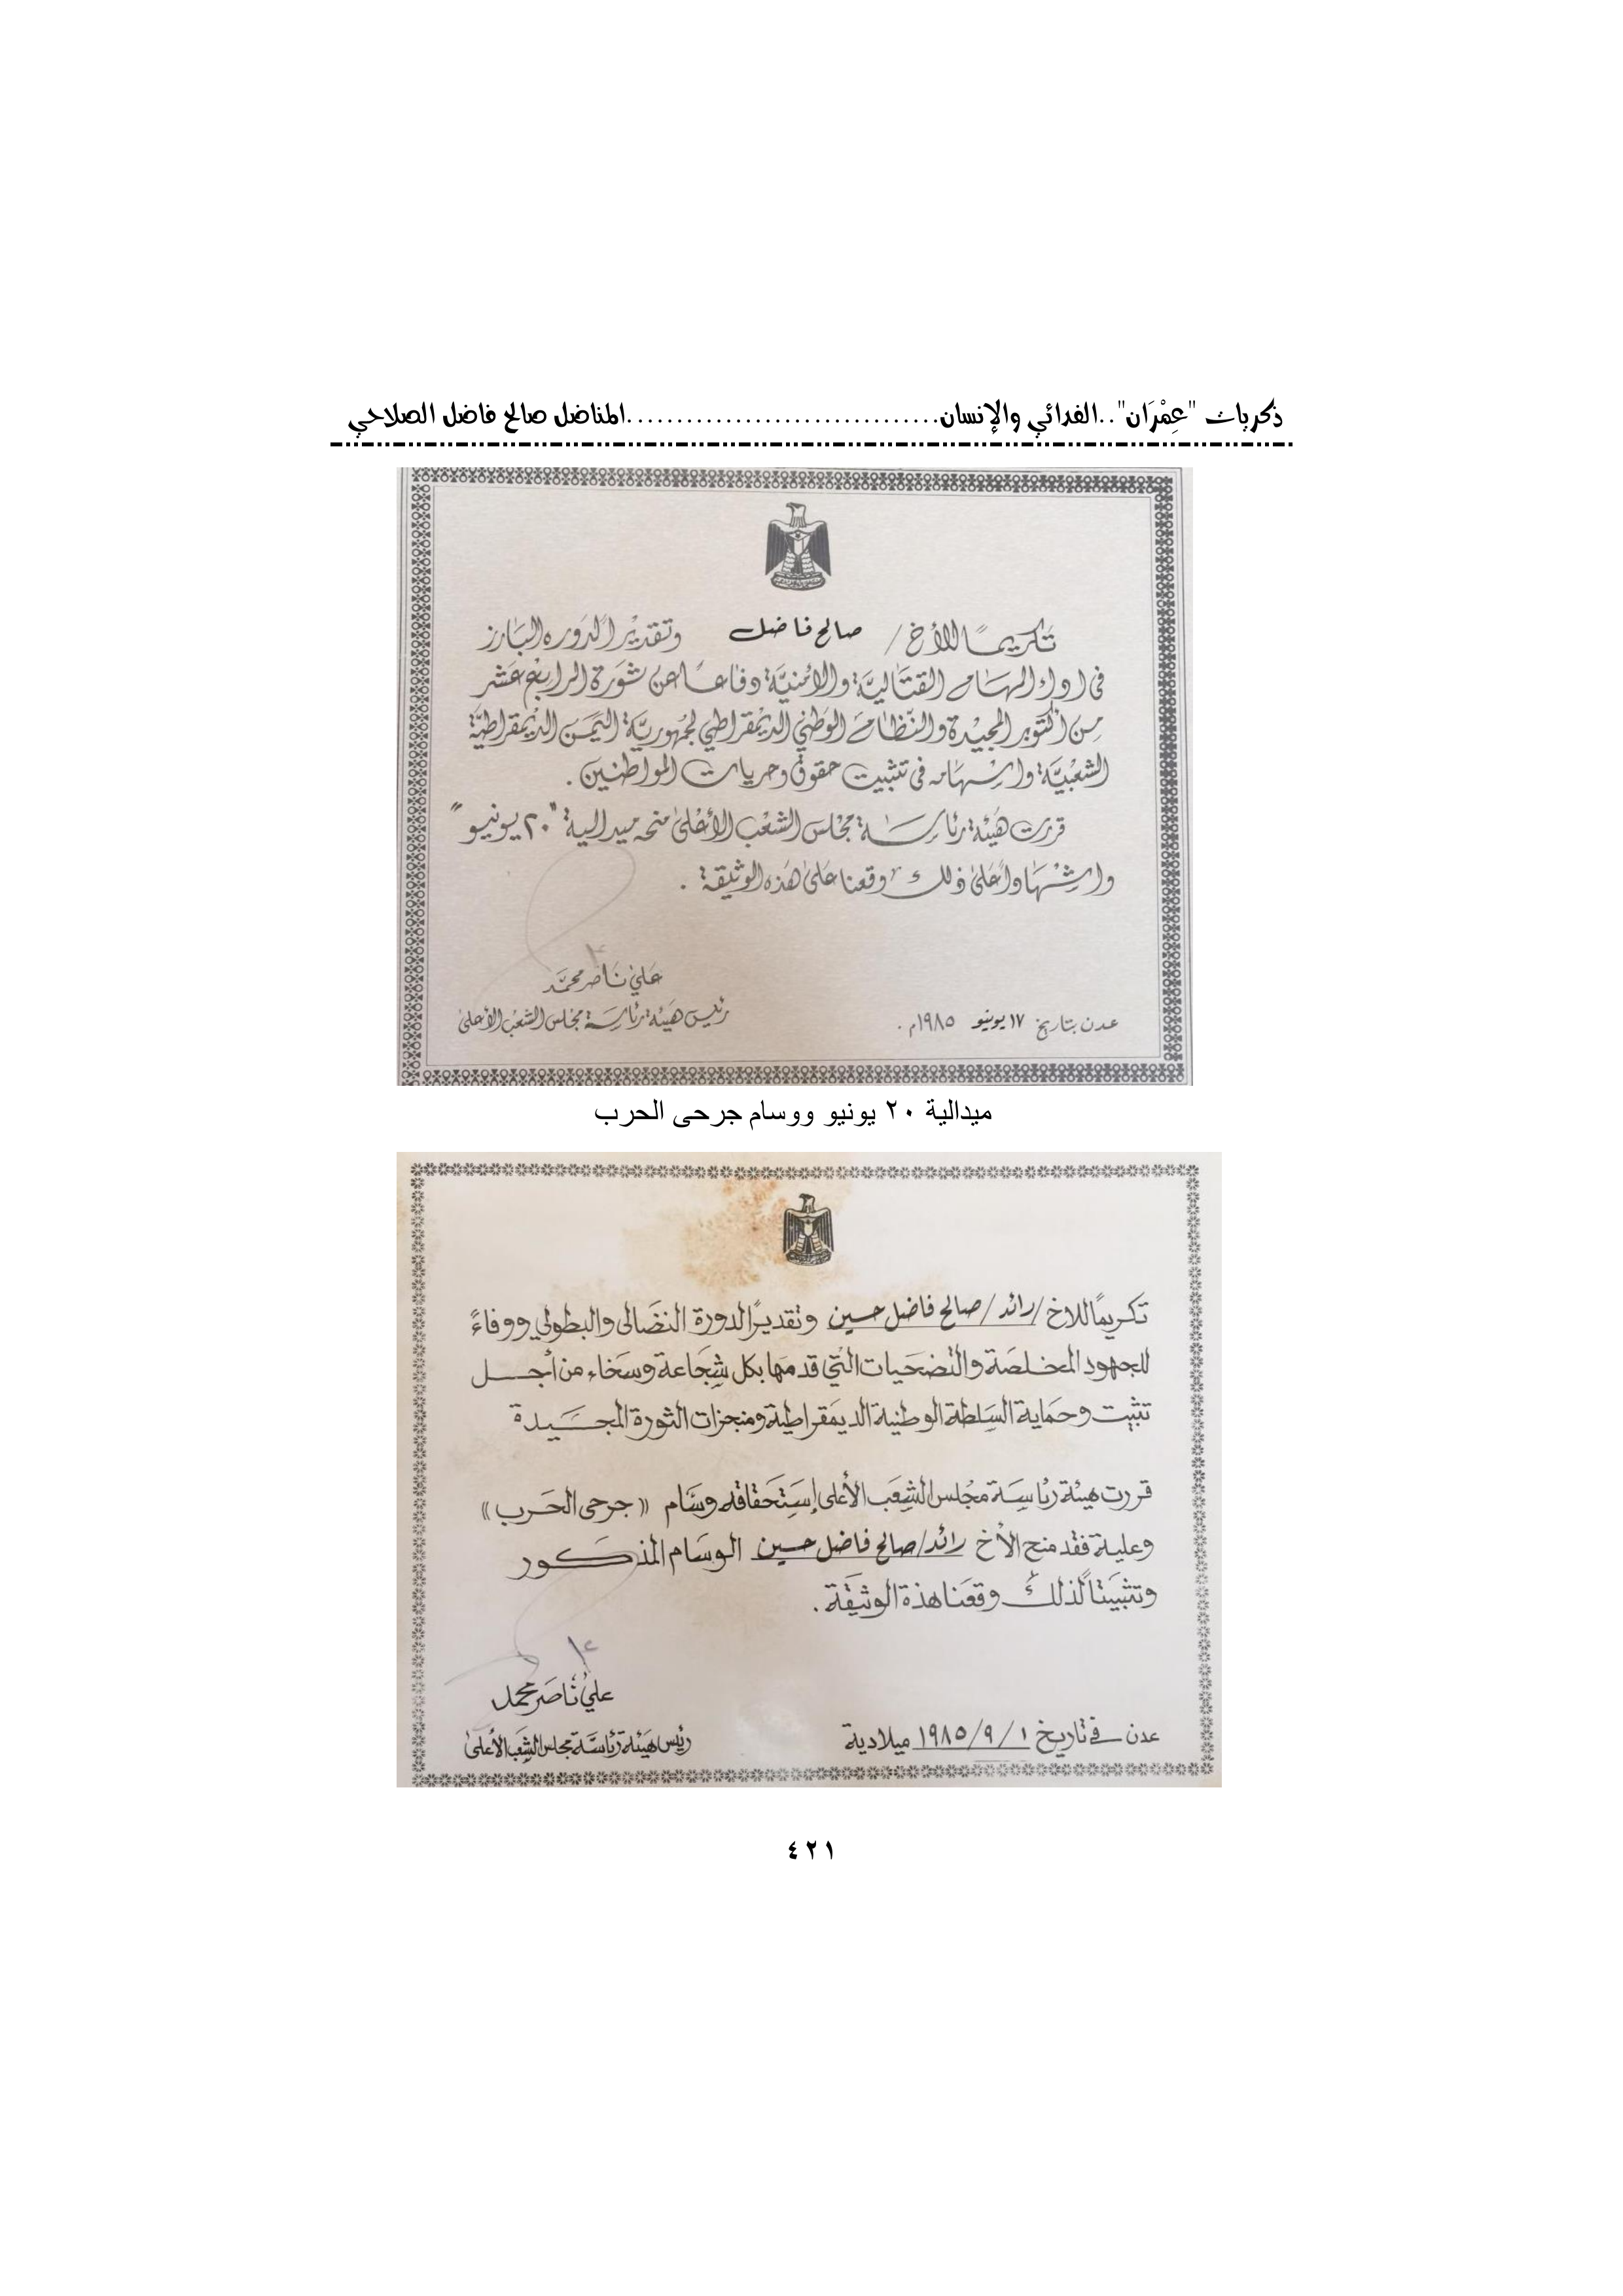 ذكريات "عِمْرَان"..الفدائي والإنسان...............................المناضل صالح فاضل الصلاحي
تكريمًا للأخ / صالح فاضل وتقديرًا لدوره البارز
في اداء المهام القتالية والأمنية دفاعًا عن ثورة الرابع عشر
من أكتوبر المجيدة والنظام الوطني الديمقراطي لجمهورية اليمن الديمقراطية
الشعبية واسهامه في تثبيت حقوق وحريات المواطنين .
قررت هيئة رئاسة مجلس الشعب الأعلى منحه ميدالية "٢٠ يونيو"
واشهادًا على ذلك وقعنا على هذه الوثيقة .
علي ناصر محمد
رئيس هيئة رئاسة مجلس الشعب الأعلى
عدن بتاريخ ١٧ يونيو ١٩٨٥م .
ميدالية ٢٠ يونيو ووسام جرحى الحرب
تكريمًا للاخ / رائد / صالح فاضل حسين وتقديرًا لدورة النضالي والبطولي ووفاءً
للجهود المخلصة والتضحيات التي قدمها بكل شجاعة وسخاء من أجل
تثبيت وحماية السلطة الوطنية الديمقراطية ومنجزات الثورة المجيدة
قررت هيئة رئاسة مجلس الشعب الأعلى إستحقاقه وسام «جرحى الحرب»
وعلية فقد منح الأخ رائد/صالح فاضل حسين الوسام المذكور
وتثبيتاً لذلك وقعنا هذة الوثيقة .
علي ناصر محمد
رئيس هيئة رئاسة مجلس الشعب الأعلى
عدن في تاريخ ١ / ٩ / ١٩٨٥ ميلادية
٤٢١